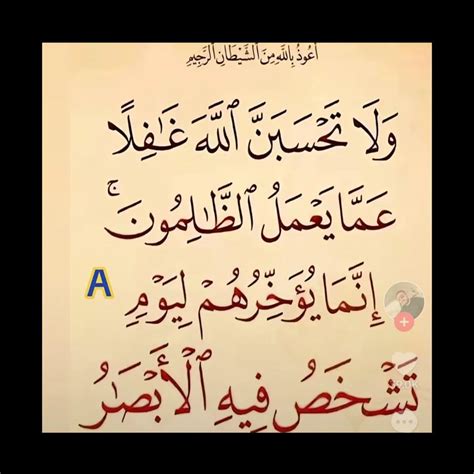 أَعُوذُ بِاللَّهِ مِنَ الشَّيْطَانِ الرَّجِيمِ
وَلَا تَحْسَبَنَّ ٱللَّهَ غَٰفِلًا
عَمَّا يَعْمَلُ ٱلظَّٰلِمُونَ ۚ
إِنَّمَا يُؤَخِّرُهُمْ لِيَوْمٍ
A
تَشْخَصُ فِيهِ ٱلْأَبْصَٰرُ